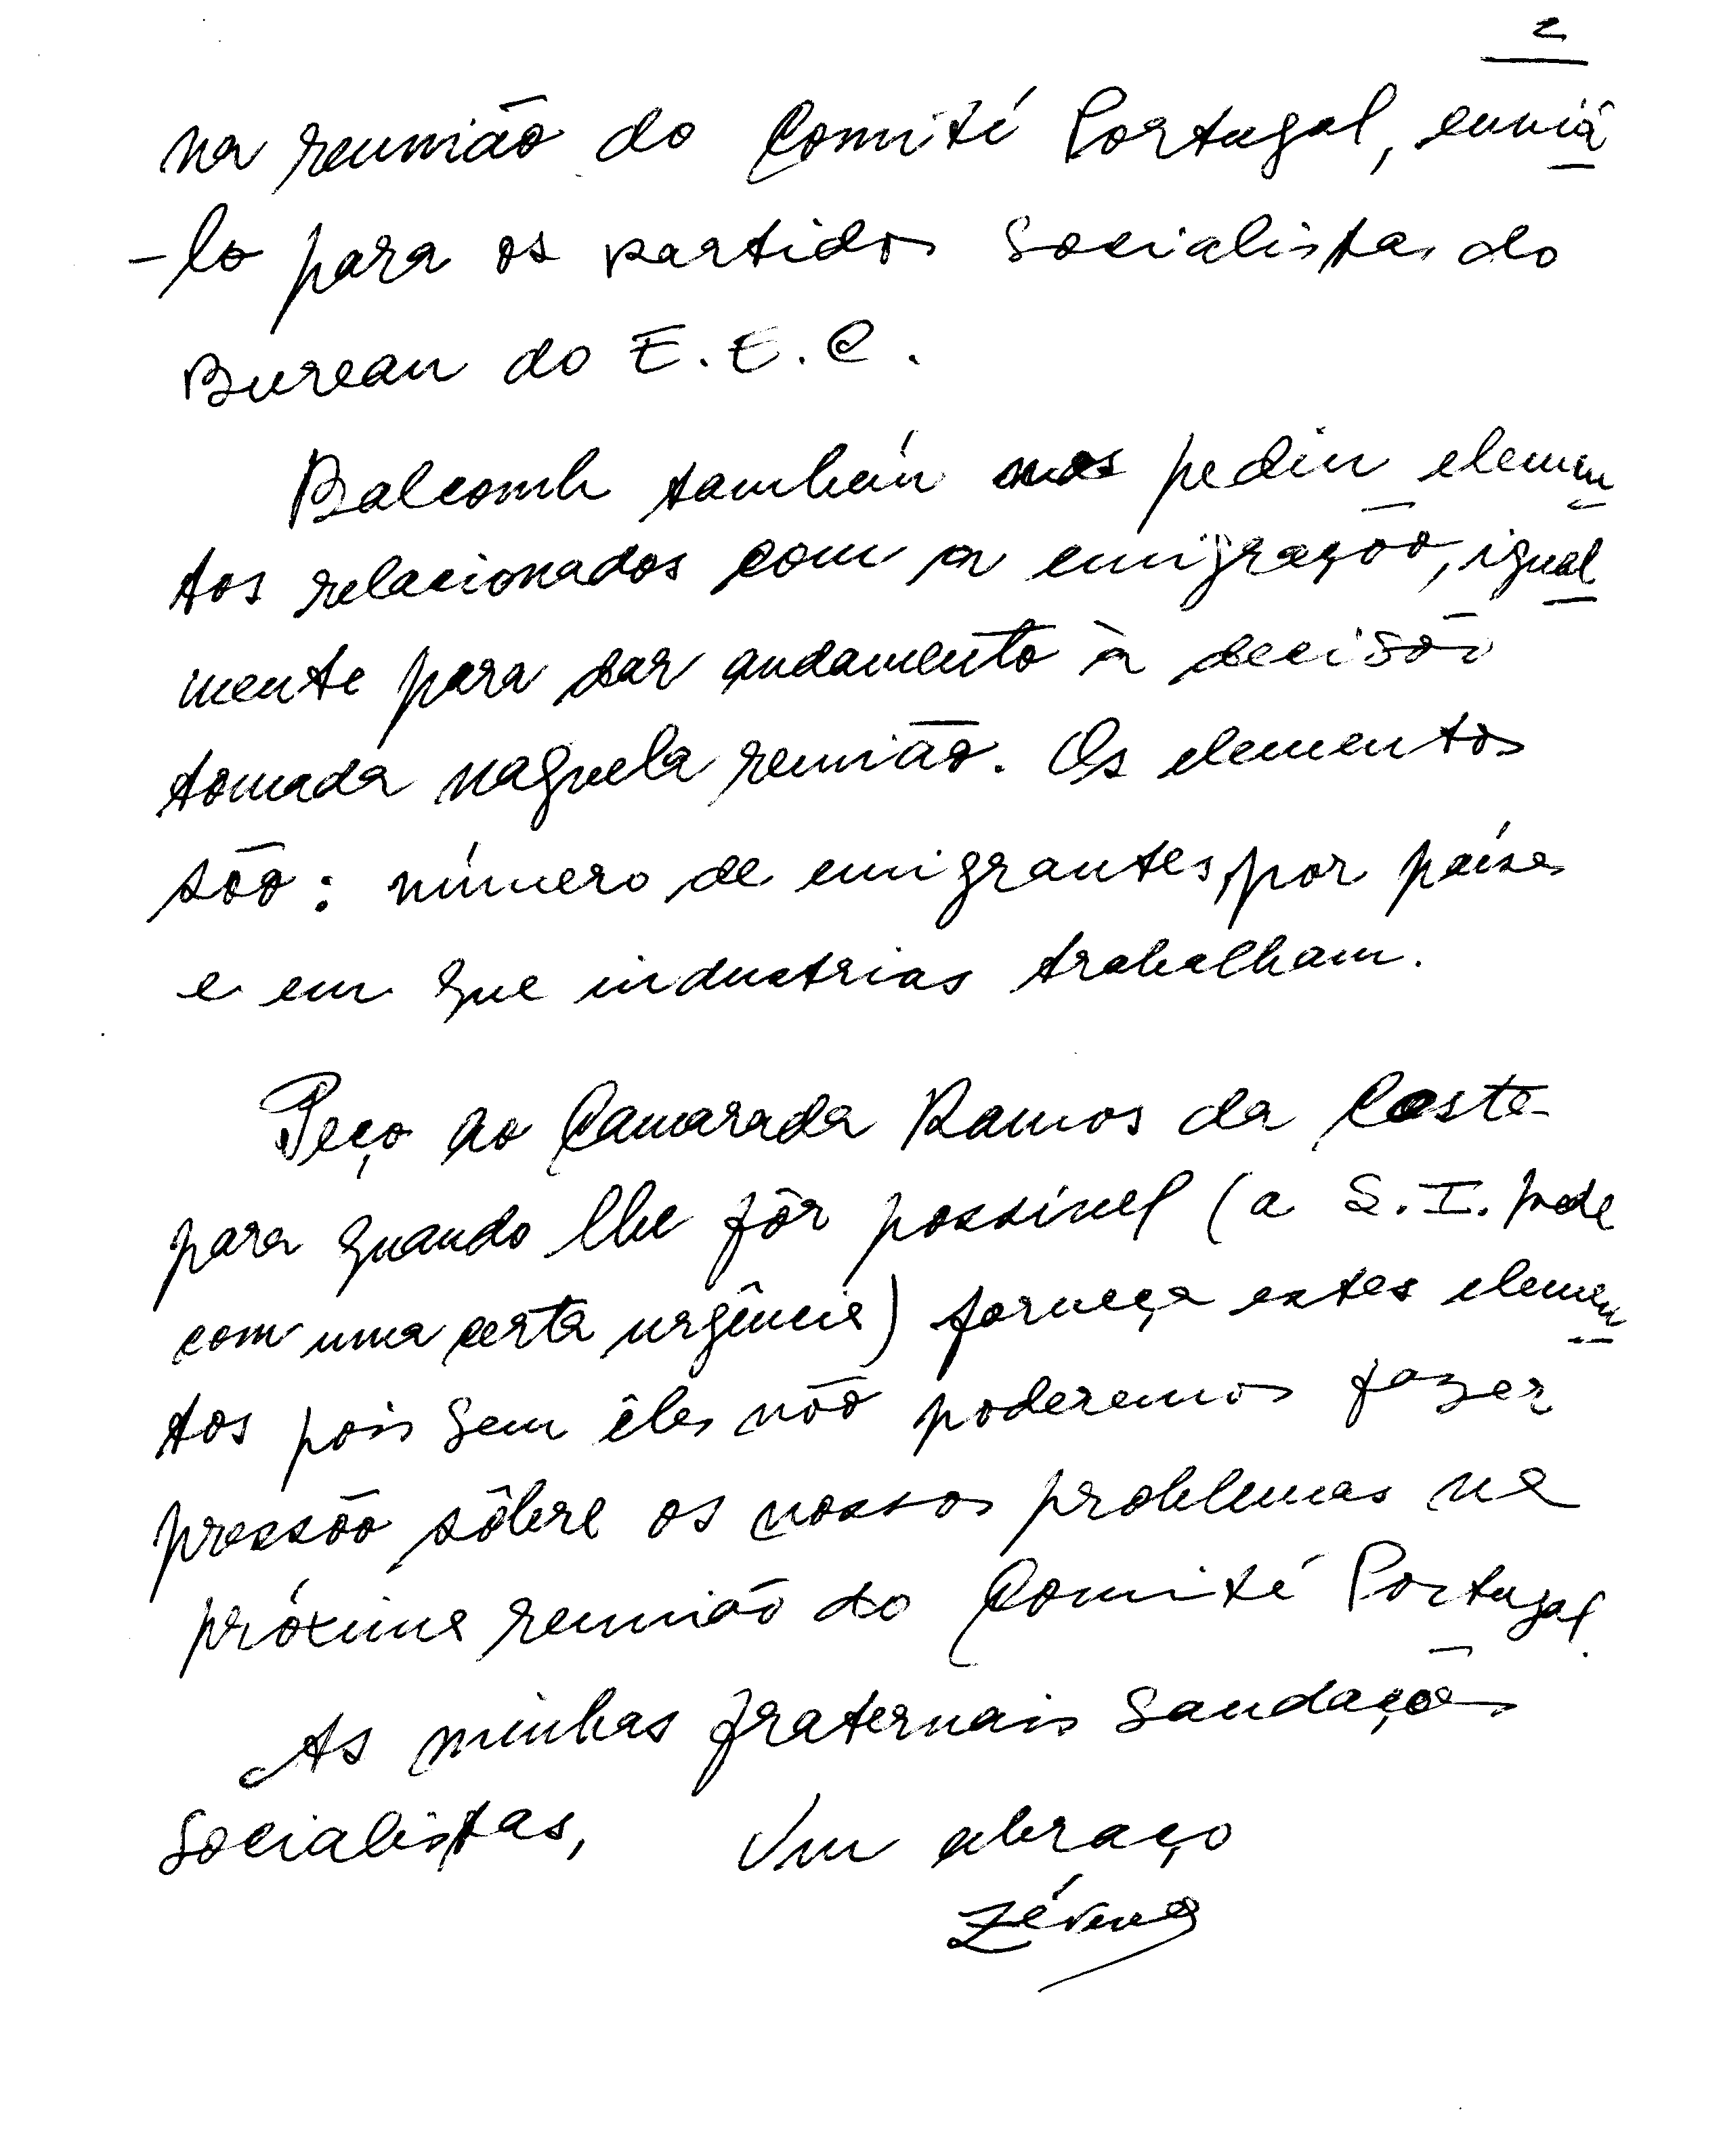 2
na reunião do Comité Portugal, enviá
-lo para os partidos socialistas do
Bureau do E.E.C.
Balcomb também nos pediu elemen
tos relacionados com a emigração, igual
mente para dar andamento à decisão
tomada naquela reunião. Os elementos
são: número de emigrantes, por países
e em que industrias trabalham.
Peço ao Camarada Ramos da Costa
para quando lhe fôr possível (a S.I. pede
com uma certa urgência) forneça estes elemen
tos pois sem êles não poderemos fazer
pressão sôbre os nossos problemas na
próxima reunião do Comité Portugal.
As minhas fraternais saudações
Socialistas, Um abraço